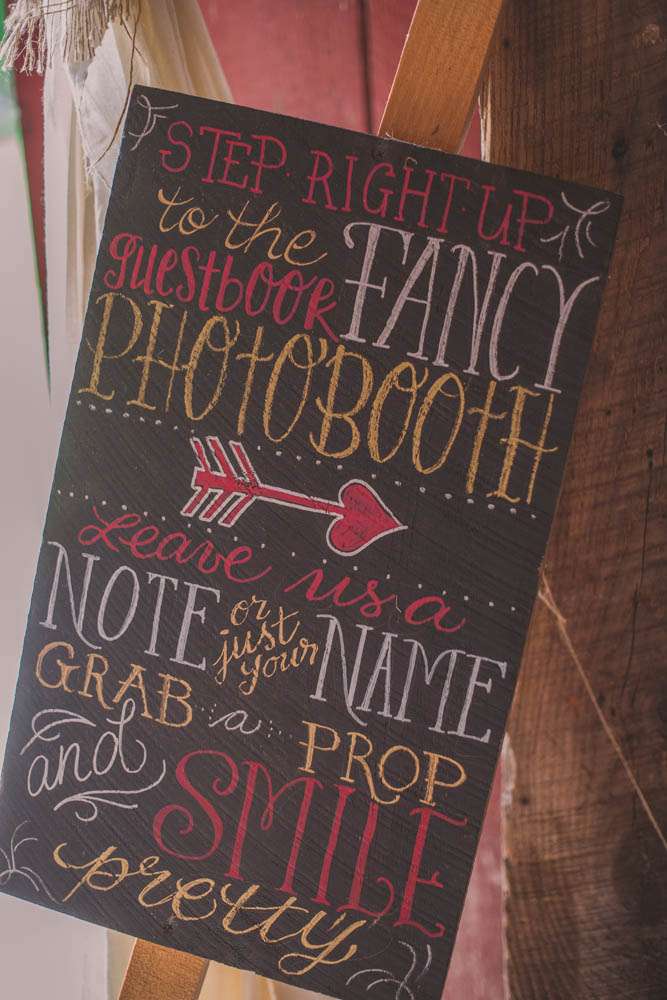 STEP·RIGHT·UP
to the
guestbook FANCY
PHOTOBOOTH
Leave us a
NOTE or just your NAME
GRAB a PROP
and SMILE
pretty